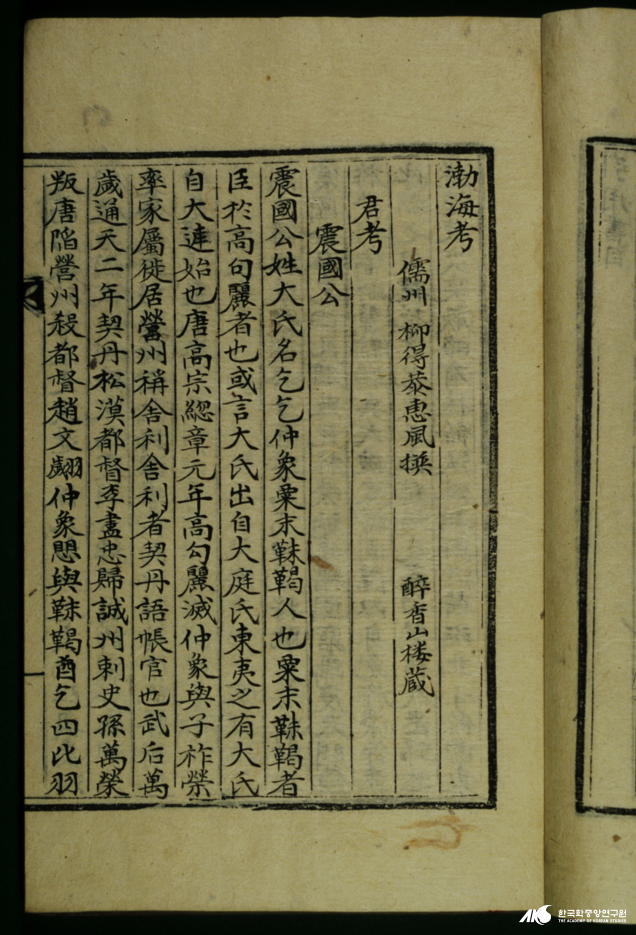 渤海考
儒州 柳得恭惠風撰 醉香山楼蔵
君考
震國公
震國公姓大氏名乞乞仲象粟末靺鞨人也粟末靺鞨者
臣於高句麗者也或言大氏出自大庭氏東夷之有大氏
自大連始也唐高宗緫章元年高勾麗滅仲象與子祚榮
率家屬徙居營州稱舍利舍利者契丹語帳官也武后萬
歲通天二年契丹松漠都督李盡忠歸誠州刺史孫萬榮
叛唐陷營州殺都督趙文翽仲象愳與靺鞨酋乞四比羽
한국학중앙연구원
THE ACADEMY OF KOREAN STUDIES